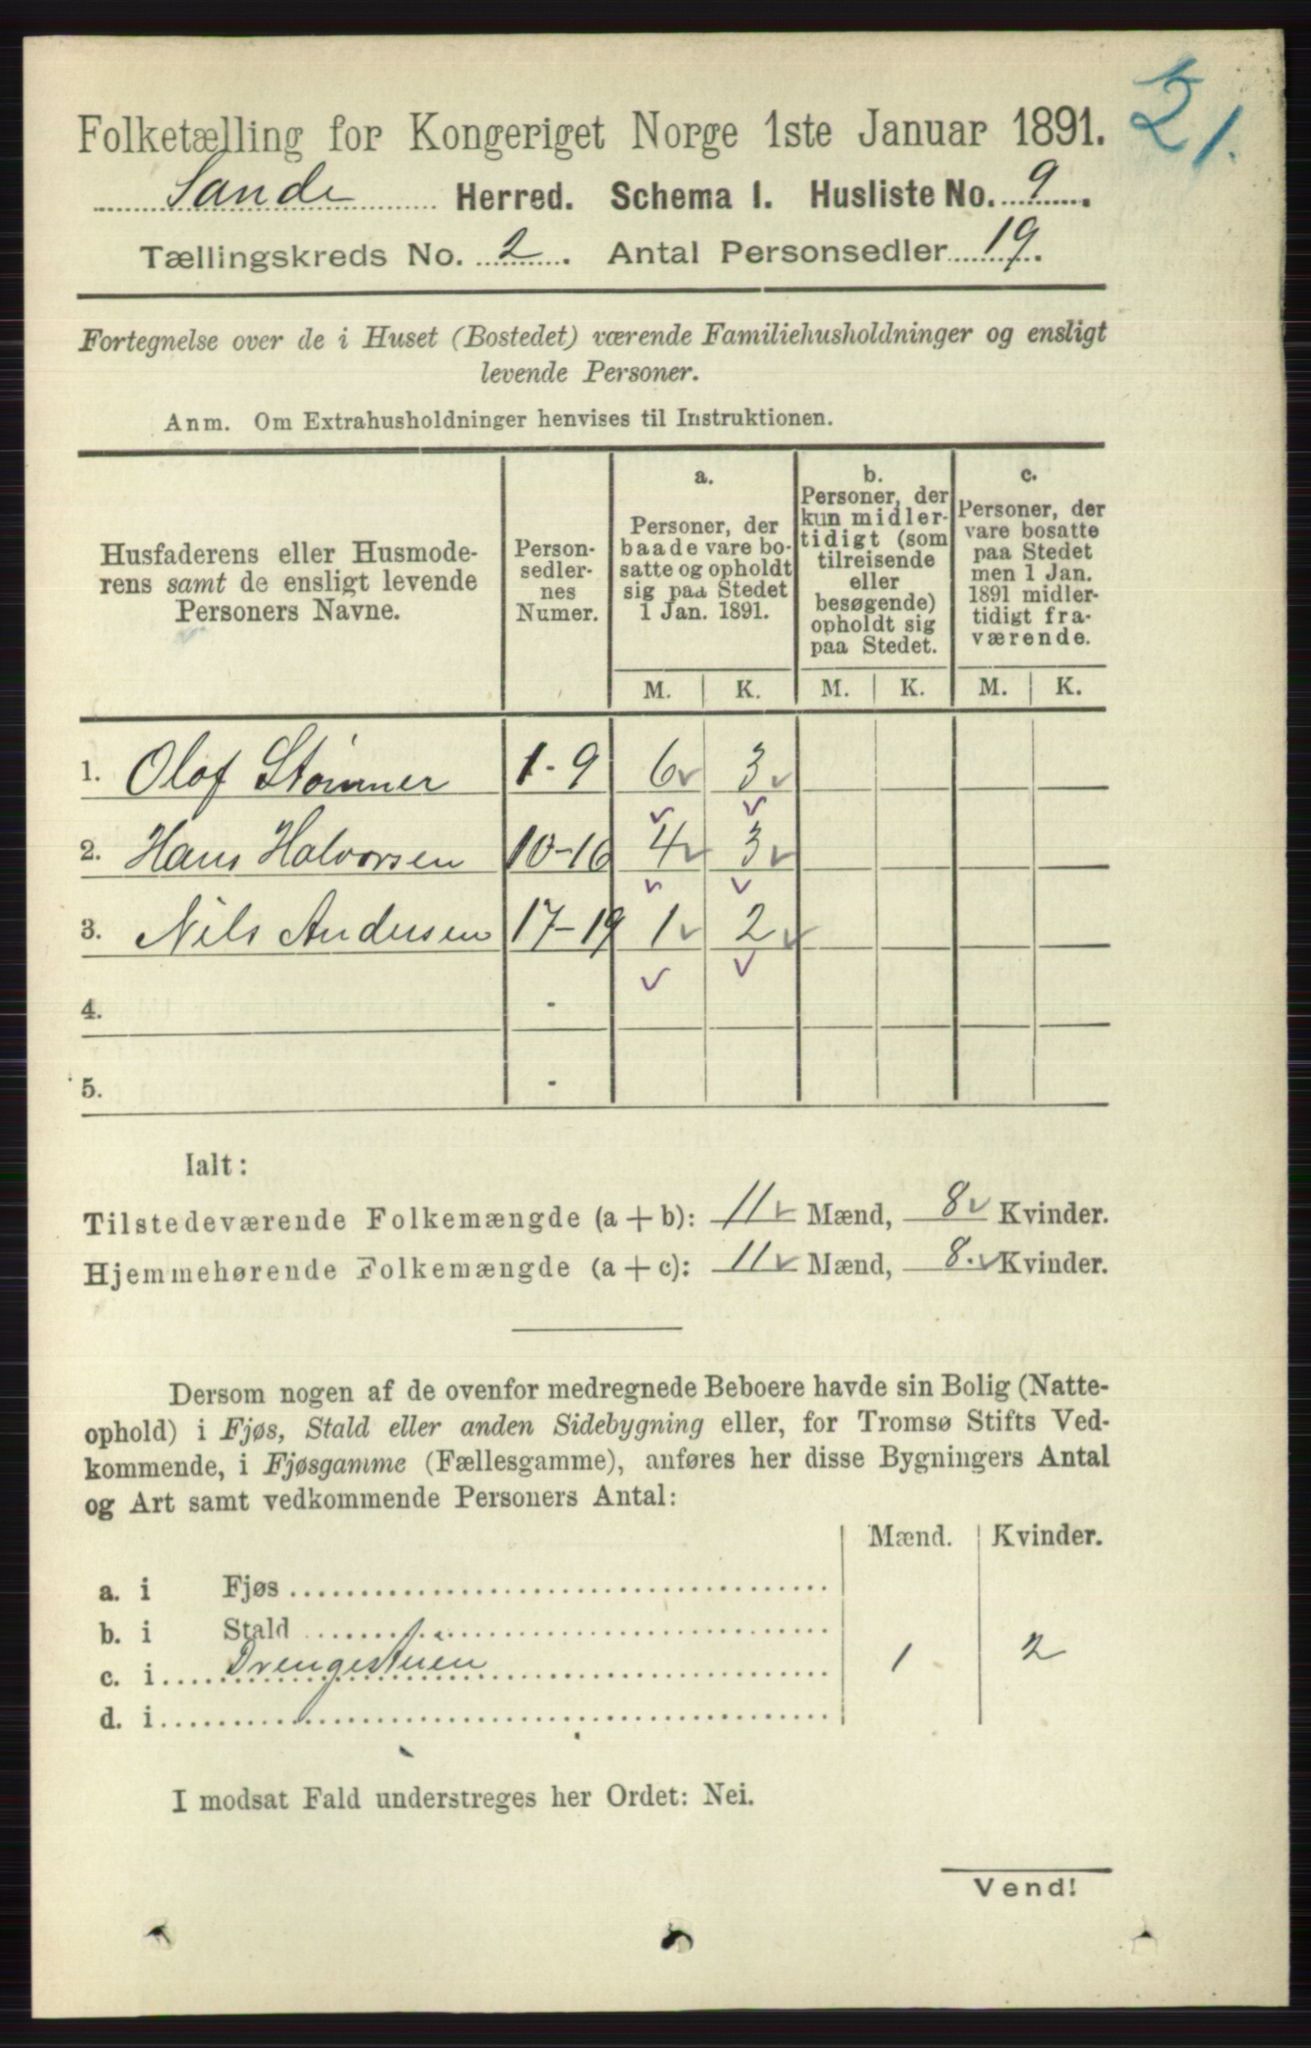 21.
Folketælling for Kongeriget Norge 1ste Januar 1891.
Sande Herred. Schema I. Husliste No. 9.
Tællingskreds No. 2. Antal Personsedler 19.
Fortegnelse over de i Huset (Bostedet) værende Familiehusholdninger og ensligt
levende Personer.
Anm. Om Extrahusholdninger henvises til Instruktionen.
Husfaderens eller Husmode-
rens samt de ensligt levende
Personers Navne.
Person-
sedler-
nes
Numer.
a.
Personer, der
baade vare bo-
satte og opholdt
sig paa Stedet
1 Jan. 1891.
b.
Personer, der
kun midler-
tidigt (som
tilreisende
eller
besøgende)
opholdt sig
paa Stedet.
c.
Personer, der
vare bosatte
paa Stedet
men 1 Jan.
1891 midler-
tidigt fra-
værende.
M. K. M. K. M. K.
1. Olaf Stømner 1-9 6 3
2. Hans Halvorsen 10-16 4 3
3. Nils Andersen 17-19 1 2
4. -
5. -
Ialt:
Tilstedeværende Folkemængde (a + b): 11 Mænd, 8 Kvinder.
Hjemmehørende Folkemængde (a + c): 11 Mænd, 8. Kvinder.
Dersom nogen af de ovenfor medregnede Beboere havde sin Bolig (Natte-
ophold) i Fjøs, Stald eller anden Sidebygning eller, for Tromsø Stifts Ved-
kommende, i Fjøsgamme (Fællesgamme), anføres her disse Bygningers Antal
og Art samt vedkommende Personers Antal:
Mænd. Kvinder.
a. i Fjøs
b. i Stald
c. i Drengestuen 1 2
d. i
I modsat Fald understreges her Ordet: Nei.
Vend!